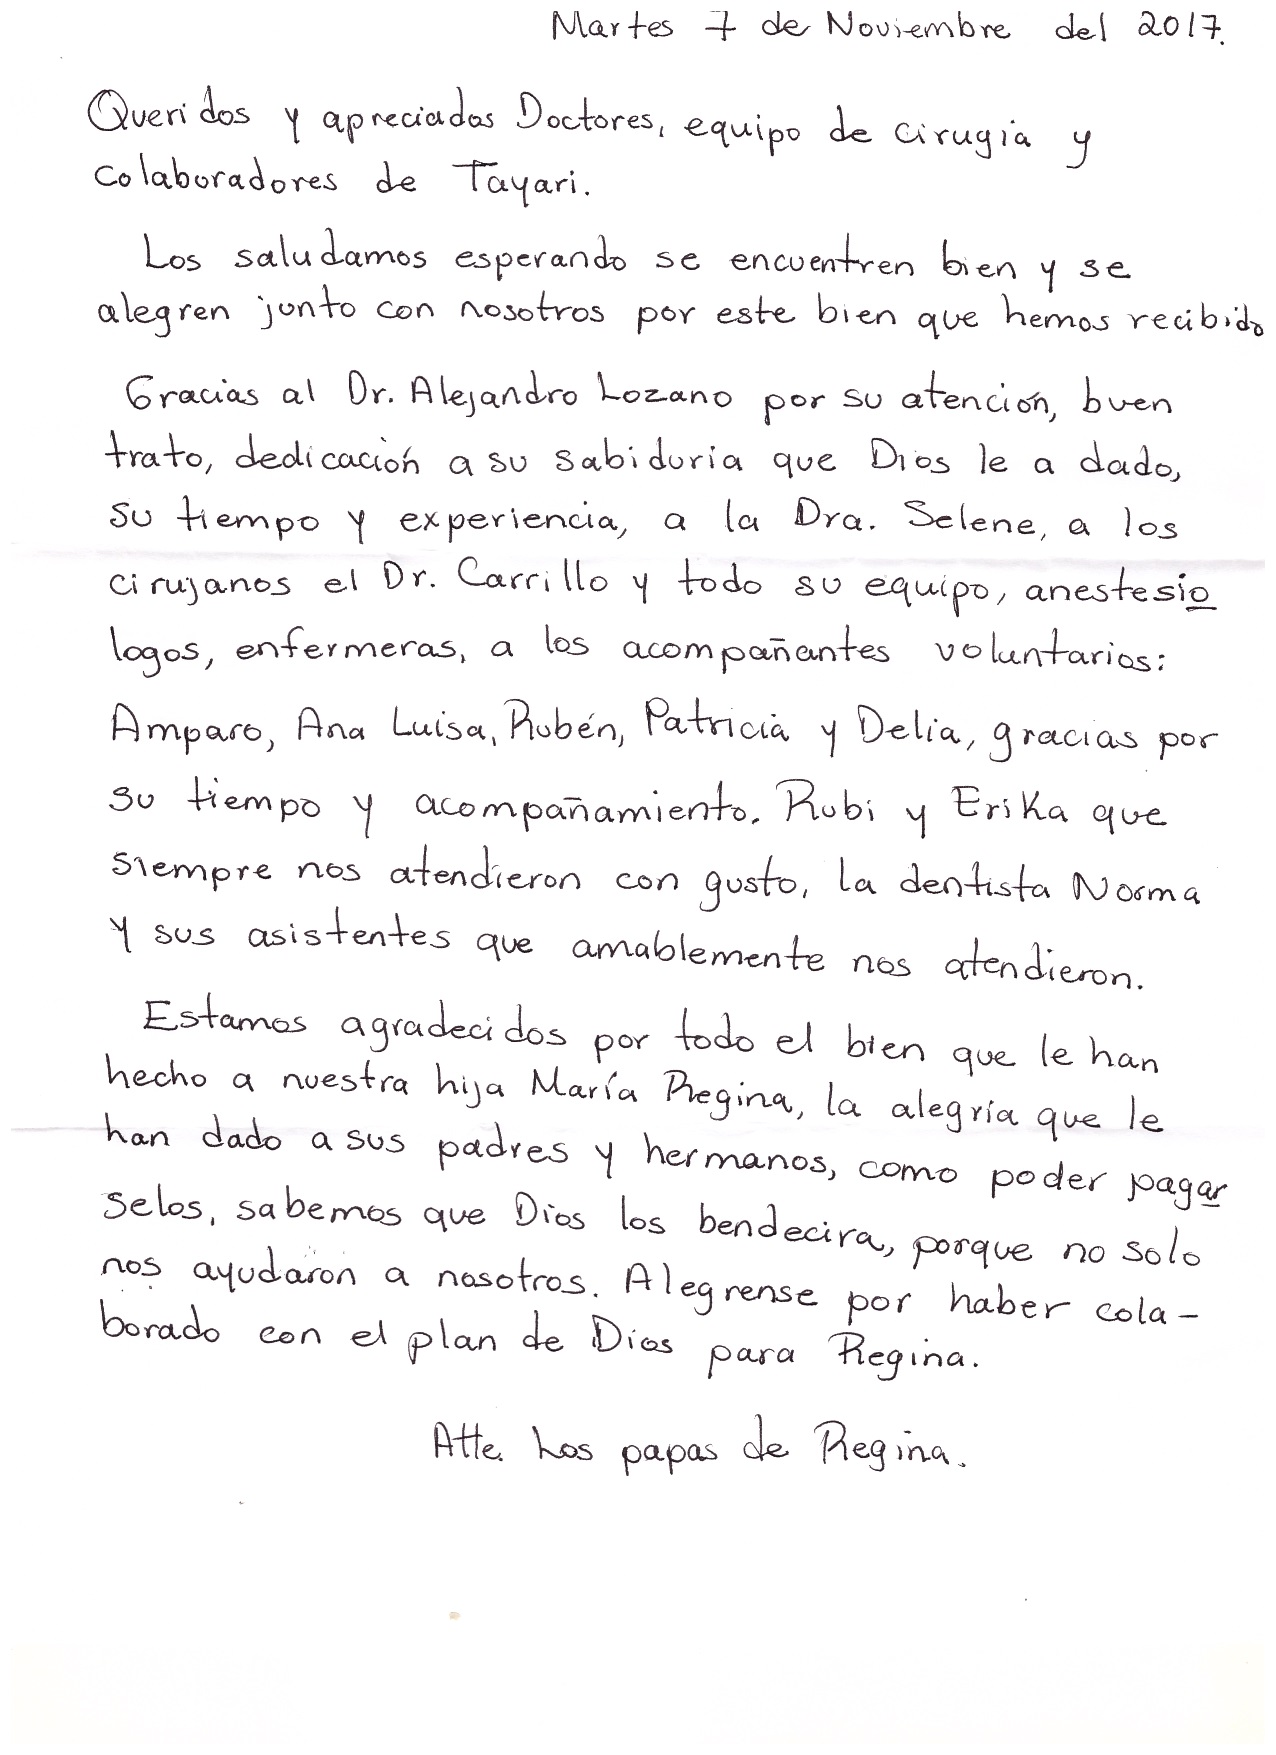 Martes 7 de Noviembre del 2017.
Queridos y apreciados Doctores, equipo de cirugia y
colaboradores de Tayari.
Los saludamos esperando se encuentren bien y se
alegren junto con nosotros por este bien que hemos recibido
Gracias al Dr. Alejandro Lozano por su atención, buen
trato, dedicación a su sabiduria que Dios le a dado,
su tiempo y experiencia, a la Dra. Selene, a los
cirujanos el Dr. Carrillo y todo su equipo, anestesio
logos, enfermeras, a los acompañantes voluntarios:
Amparo, Ana Luisa, Rubén, Patricia y Delia, gracias por
su tiempo y acompañamiento. Rubi y Erika que
siempre nos atendieron con gusto, la dentista Norma
y sus asistentes que amablemente nos atendieron.
Estamos agradecidos por todo el bien que le han
hecho a nuestra hija María Regina, la alegría que le
han dado a sus padres y hermanos, como poder pagar
selos, sabemos que Dios los bendecira, porque no solo
nos ayudaron a nosotros. Alegrense por haber cola-
borado con el plan de Dios para Regina.
Atte. Los papas de Regina.